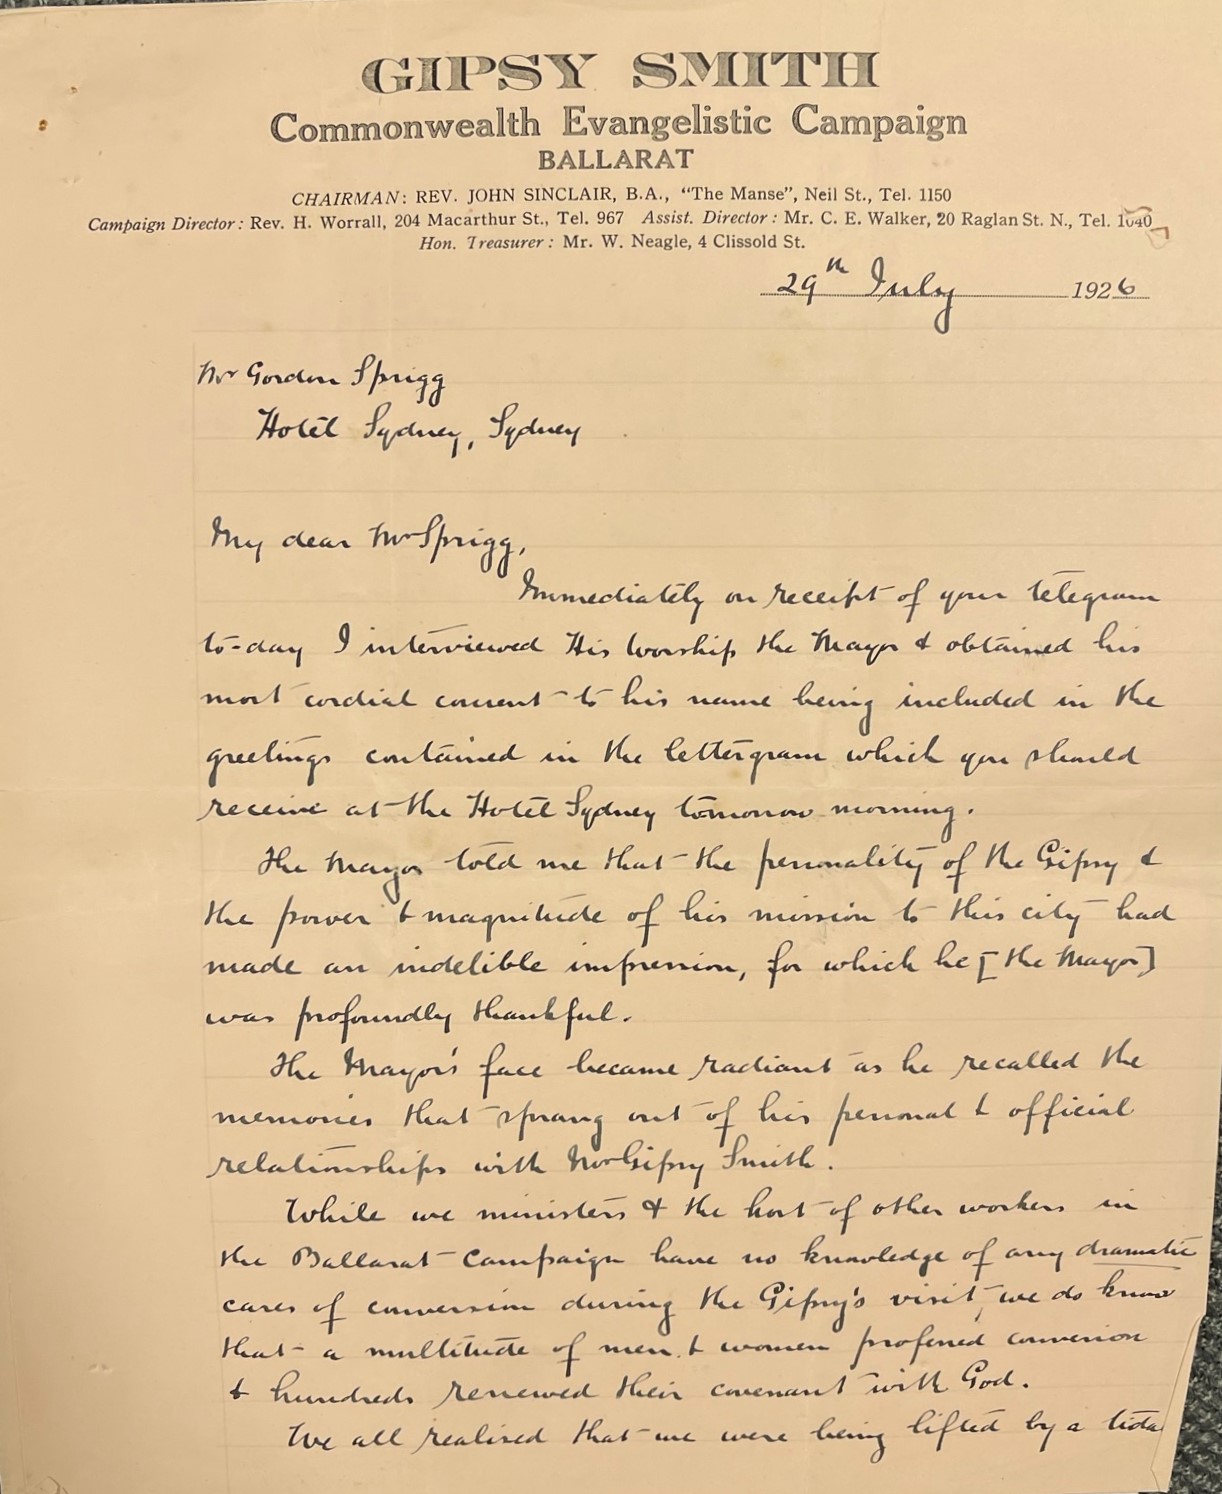 GIPSY SMITH
Commonwealth Evangelistic Campaign
BALLARAT
CHAIRMAN: REV. JOHN SINCLAIR, B.A., "The Manse", Neil St., Tel. 1150
Campaign Director: Rev. H. Worrall, 204 Macarthur St., Tel. 967 Assist. Director: Mr. C. E. Walker, 20 Raglan St. N., Tel. 1040
Hon. Treasurer: Mr. W. Neagle, 4 Clissold St.
29th July 1926
Mr Gordon Sprigg
Hotel Sydney, Sydney
My dear Mr Sprigg,
Immediately on receipt of your telegram
to-day I interviewed His Worship the Mayor & obtained his
most cordial consent to his name being included in the
greetings contained in the lettergram which you should
receive at the Hotel Sydney tomorrow morning.
The Mayor told me that the personality of the Gipsy &
the power & magnitude of his mission to this city had
made an indelible impression, for which he [the Mayor]
was profoundly thankful.
The Mayor's face became radiant as he recalled the
memories that sprang out of his personal & official
relationships with Mr Gipsy Smith.
While we ministers & the host of other workers in
the Ballarat Campaign have no knowledge of any dramatic
cases of conversion during the Gipsy's visit, we do know
that a multitude of men & women professed conversion
& hundreds renewed their covenant with God.
We all realised that we were being lifted by a tidal